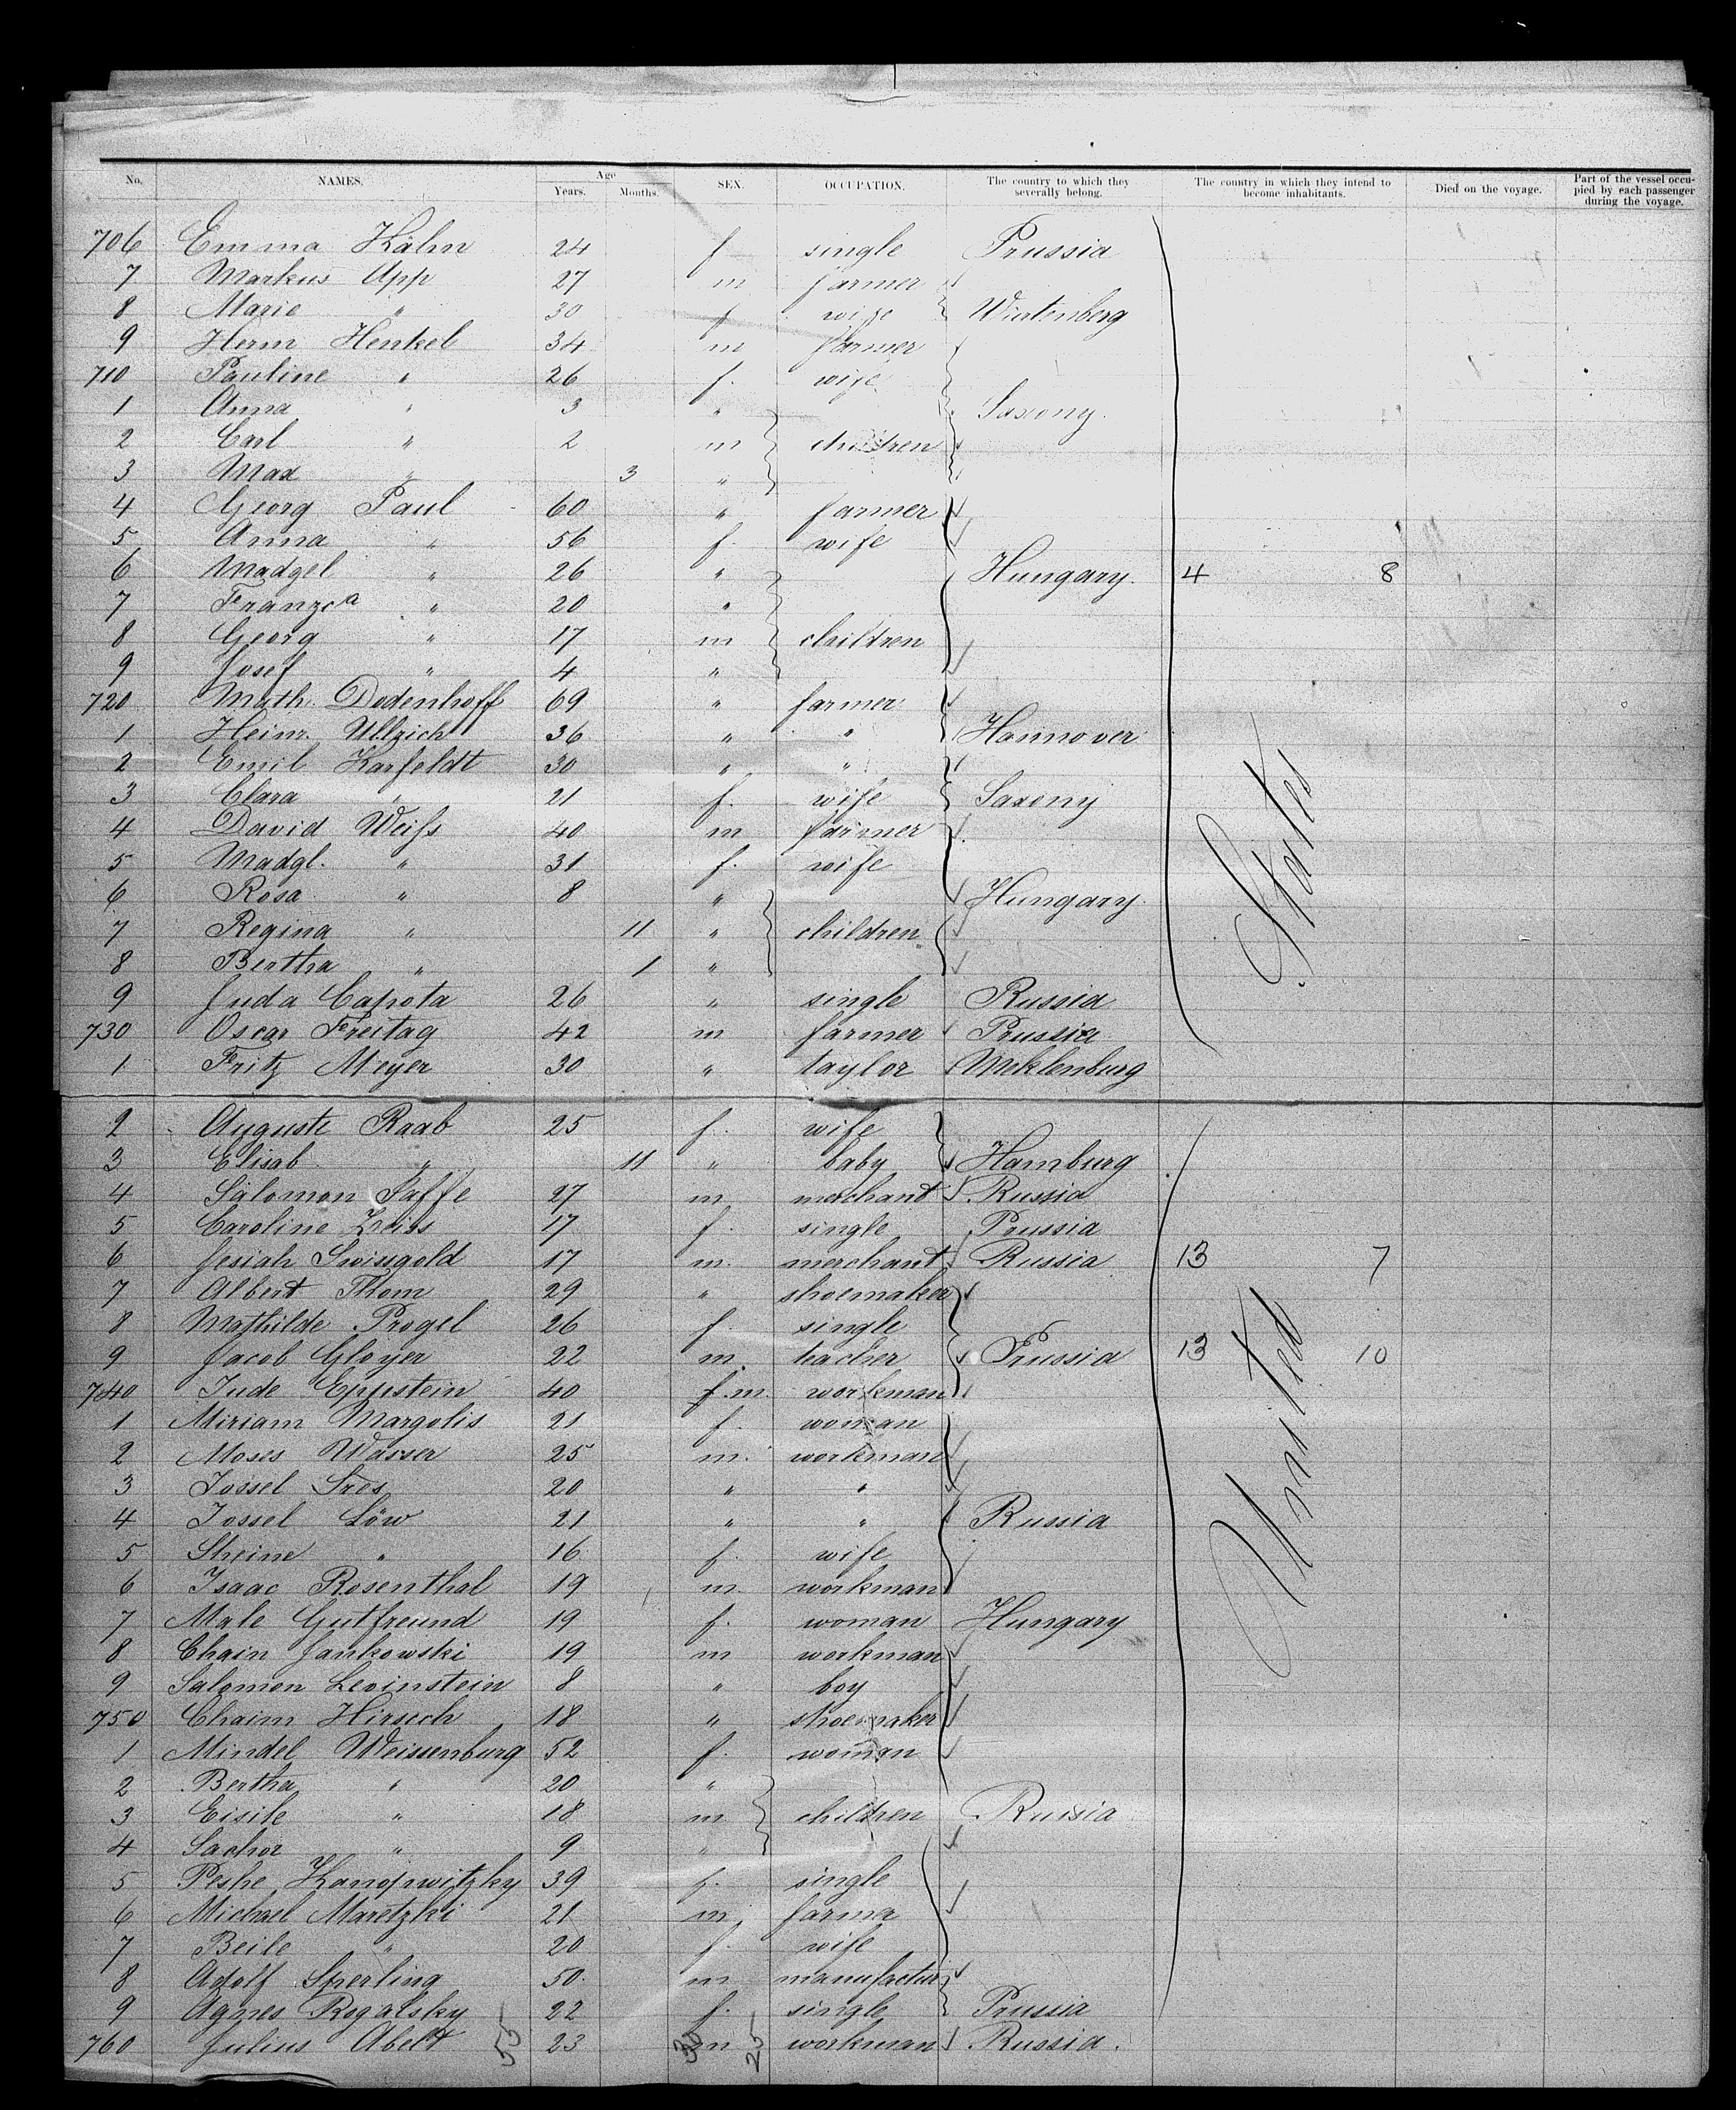 No. NAMES. Age Years. Months. SEX. OCCUPATION. The country to which they severally belong. The country in which they intend to become inhabitants. Died on the voyage. Part of the vessel occupied by each passenger during the voyage.
706 Emma Kähn 24 f single Prussia
7 Markus Upp 27 m farmer
8 Marie " 30 f wife Wirtenberg
9 Herm Henkel 34 m farmer
710 Pauline " 26 f. wife
1 Anna " 3 " Saxony.
2 Carl " 2 m children
3 Max " 3 "
4 Georg Paul 60 " farmer
5 Anna " 56 f. wife
6 Madgel " 26 " Hungary. 4 8
7 Franzca " 20 "
8 Georg " 17 m children
9 Josef " 4 "
720 Math. Dodenhoff 69 " farmer
1 Heinr. Ullrich 36 " " Hannover
2 Emil Karfeldt 30 " "
3 Clara " 21 f. wife Saxony
4 David Weiſs 40 m farmer
5 Madgl. " 31 f. wife
6 Rosa " 8 " Hungary.
7 Regina " 11 " children
8 Bertha " 1 "
9 Juda Capota 26 " single Russia
730 Oscar Freitag 42 m farmer Prussia
1 Fritz Meyer 30 " taylor Meklenburg
2 Auguste Raab 25 f. wife
3 Elisab " 11 " baby Hamburg
4 Salomon Jaffe 27 m merchant Russia
5 Caroline Zeiss 17 f. single Prussia
6 Jesiah Swisgold 17 m. merchant Russia 13 7
7 Albert Thom 29 " shoemaker
8 Mathilde Progel 26 f. single
9 Jacob Gloyer 22 m. teacher Prussia 13 10
740 Jude Eppstein 40 f. m. workman
1 Miriam Margolis 21 f. woman
2 Moses Wasser 25 m. workman
3 Jossel Sres 20 " "
4 Jossel Löw 21 " " Russia
5 Sheine " 16 f. wife
6 Isaac Rosenthal 19 m. workman
7 Male Gutfreund 19 f. woman Hungary
8 Chain Jankowski 19 m workman
9 Salomon Levinstein 8 " boy
750 Chaim Hirsch 18 " shoemaker
1 Mindel Weissenburg 52 f. woman
2 Bertha " 20 "
3 Eisile " 18 m children Russia
4 Sachor " 9 "
5 Peshe 39 f. single
6 Michael Maretzki 21 m farmer
7 Beile " 20 f. wife
8 Adolf Sperling 50. m manufactur
9 Agnes Rogalsky 22 f. single Prussia
760 Julius Abelt 23 m workman Russia.
United States
55 30 25